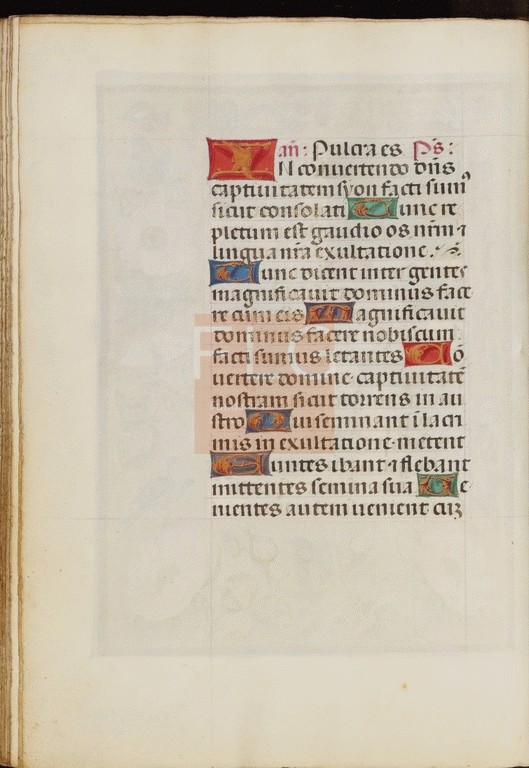 añ: Pulcra es Ps:
IN convertendo dn̄s
captivitatem syon facti sum⁹
sicut consolati Tunc re
pletum est gaudio os nr̄m ⁊
lingua nr̄a exultatione.
Tunc dicent inter gentes
magnificavit dominus face
re cum eis Magnificavit
dominus facere nobiscum
facti sumus letantes Cō
vertere domine captivitatē
nostram sicut torrens in au
stro Qui seminant ī lacri
mis in exultatione metent
Euntes ibant ⁊ flebant
mittentes semina sua Ve
nientes autem venient cuʒ